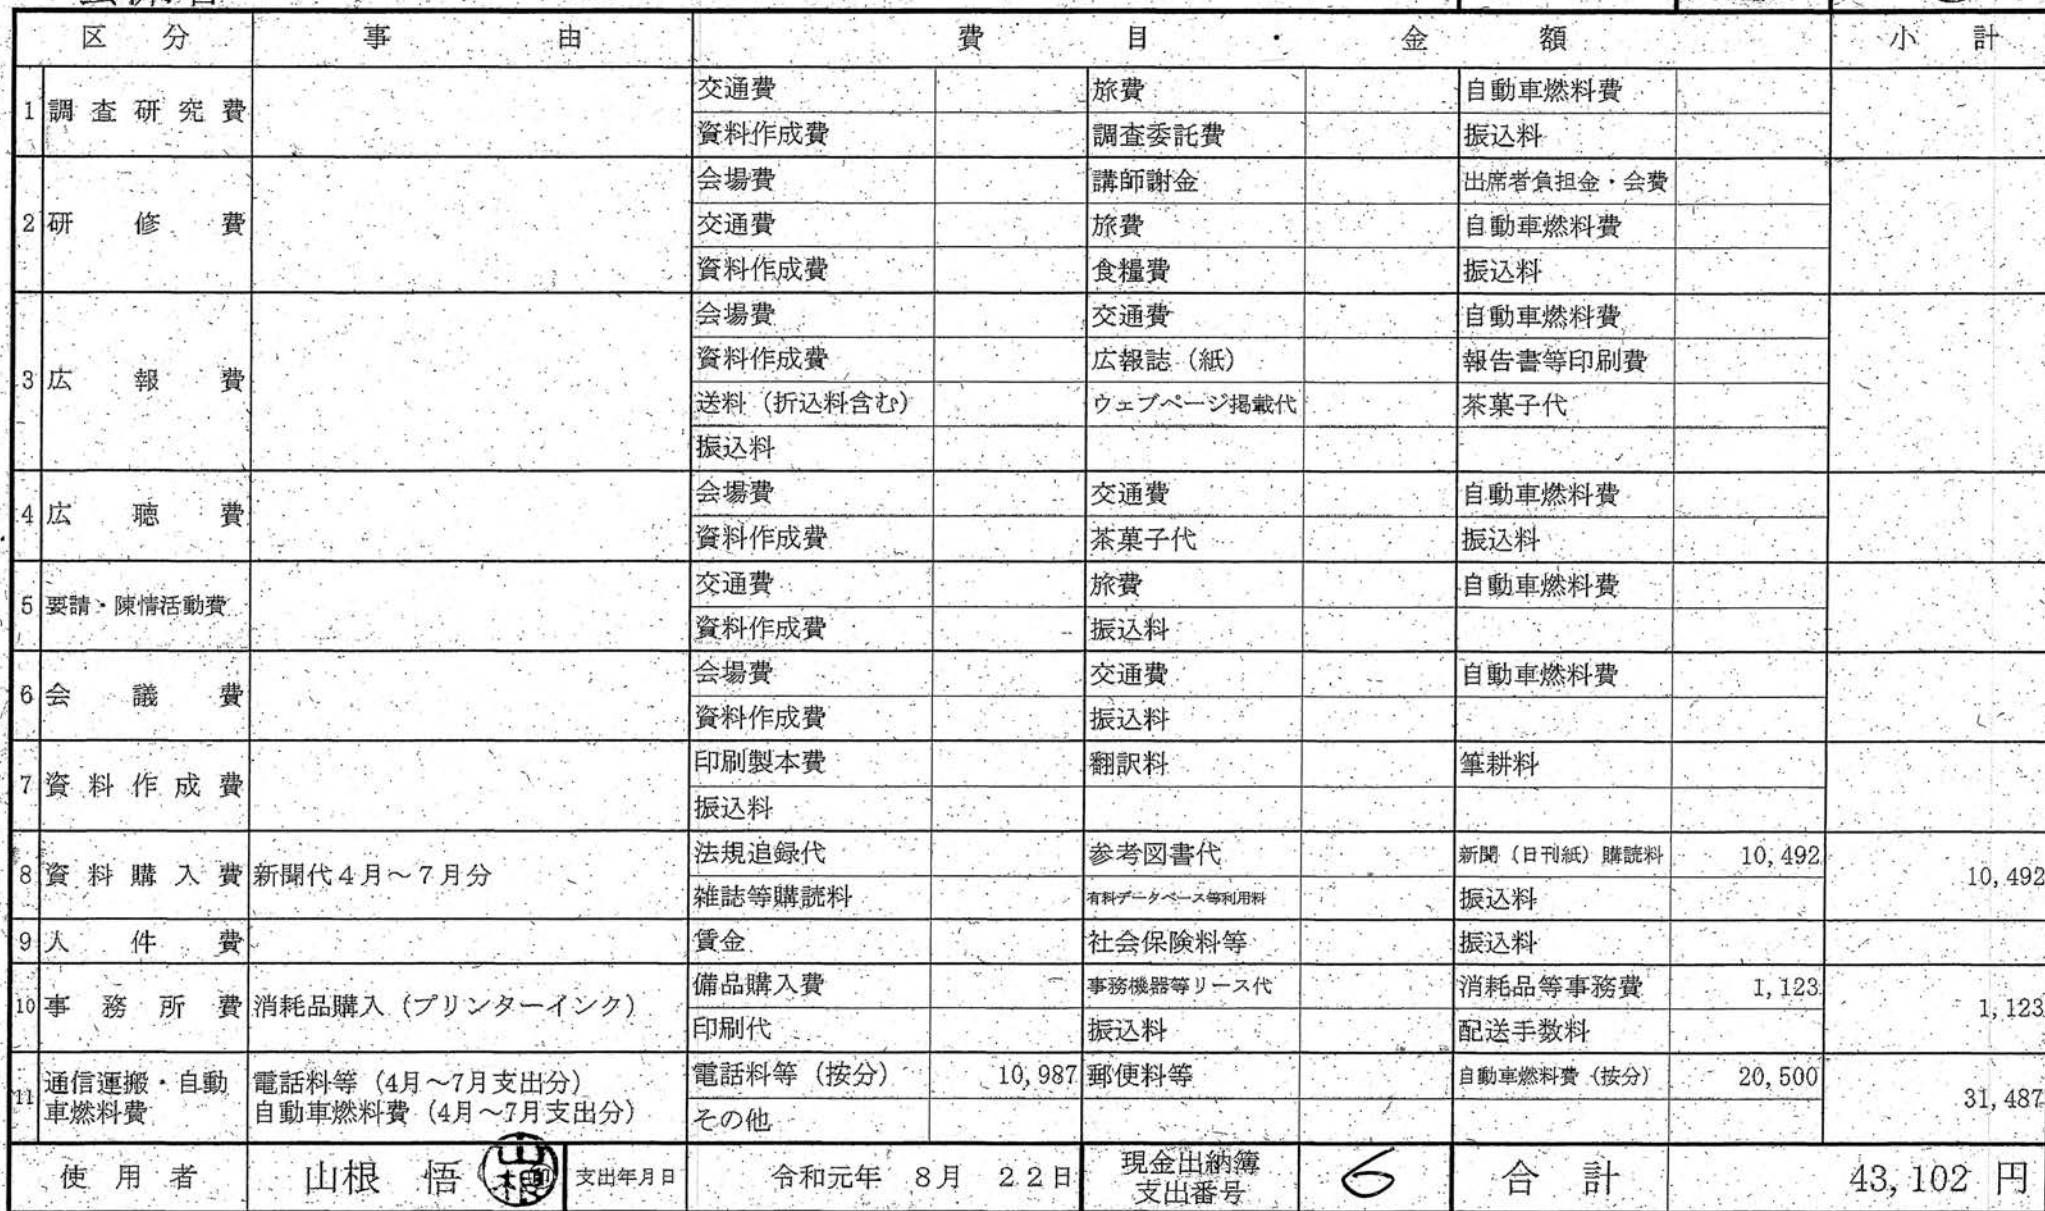 区分 事由 費目・金額 小計
1 調査研究費 交通費 旅費 自動車燃料費
資料作成費 調査委託費 振込料
2 研修費 会場費 講師謝金 出席者負担金・会費
交通費 旅費 自動車燃料費
資料作成費 食糧費 振込料
3 広報費 会場費 交通費 自動車燃料費
資料作成費 広報誌（紙） 報告書等印刷費
送料（折込料含む） ウェブページ掲載代 茶菓子代
振込料
4 広聴費 会場費 交通費 自動車燃料費
資料作成費 茶菓子代 振込料
5 要請・陳情活動費 交通費 旅費 自動車燃料費
資料作成費 振込料
6 会議費 会場費 交通費 自動車燃料費
資料作成費 振込料
7 資料作成費 印刷製本費 翻訳料 筆耕料
振込料
8 資料購入費 新聞代4月～7月分 法規追録代 参考図書代 新聞（日刊紙）購読料 10,492 10,492
雑誌等購読料 有料データベース等利用料 振込料
9 人件費 賃金 社会保険料等 振込料
10 事務所費 消耗品購入（プリンターインク） 備品購入費 事務機器等リース代 消耗品等事務費 1,123 1,123
印刷代 振込料 配送手数料
11 通信運搬・自動車燃料費 電話料等（4月～7月支出分） 電話料等（按分） 10,987 郵便料等 自動車燃料費（按分） 20,500 31,487
自動車燃料費（4月～7月支出分） その他
使用者 山根 悟 山根 印 支出年月日 令和元年 8月 22日 現金出納簿支出番号 6 合計 43,102 円